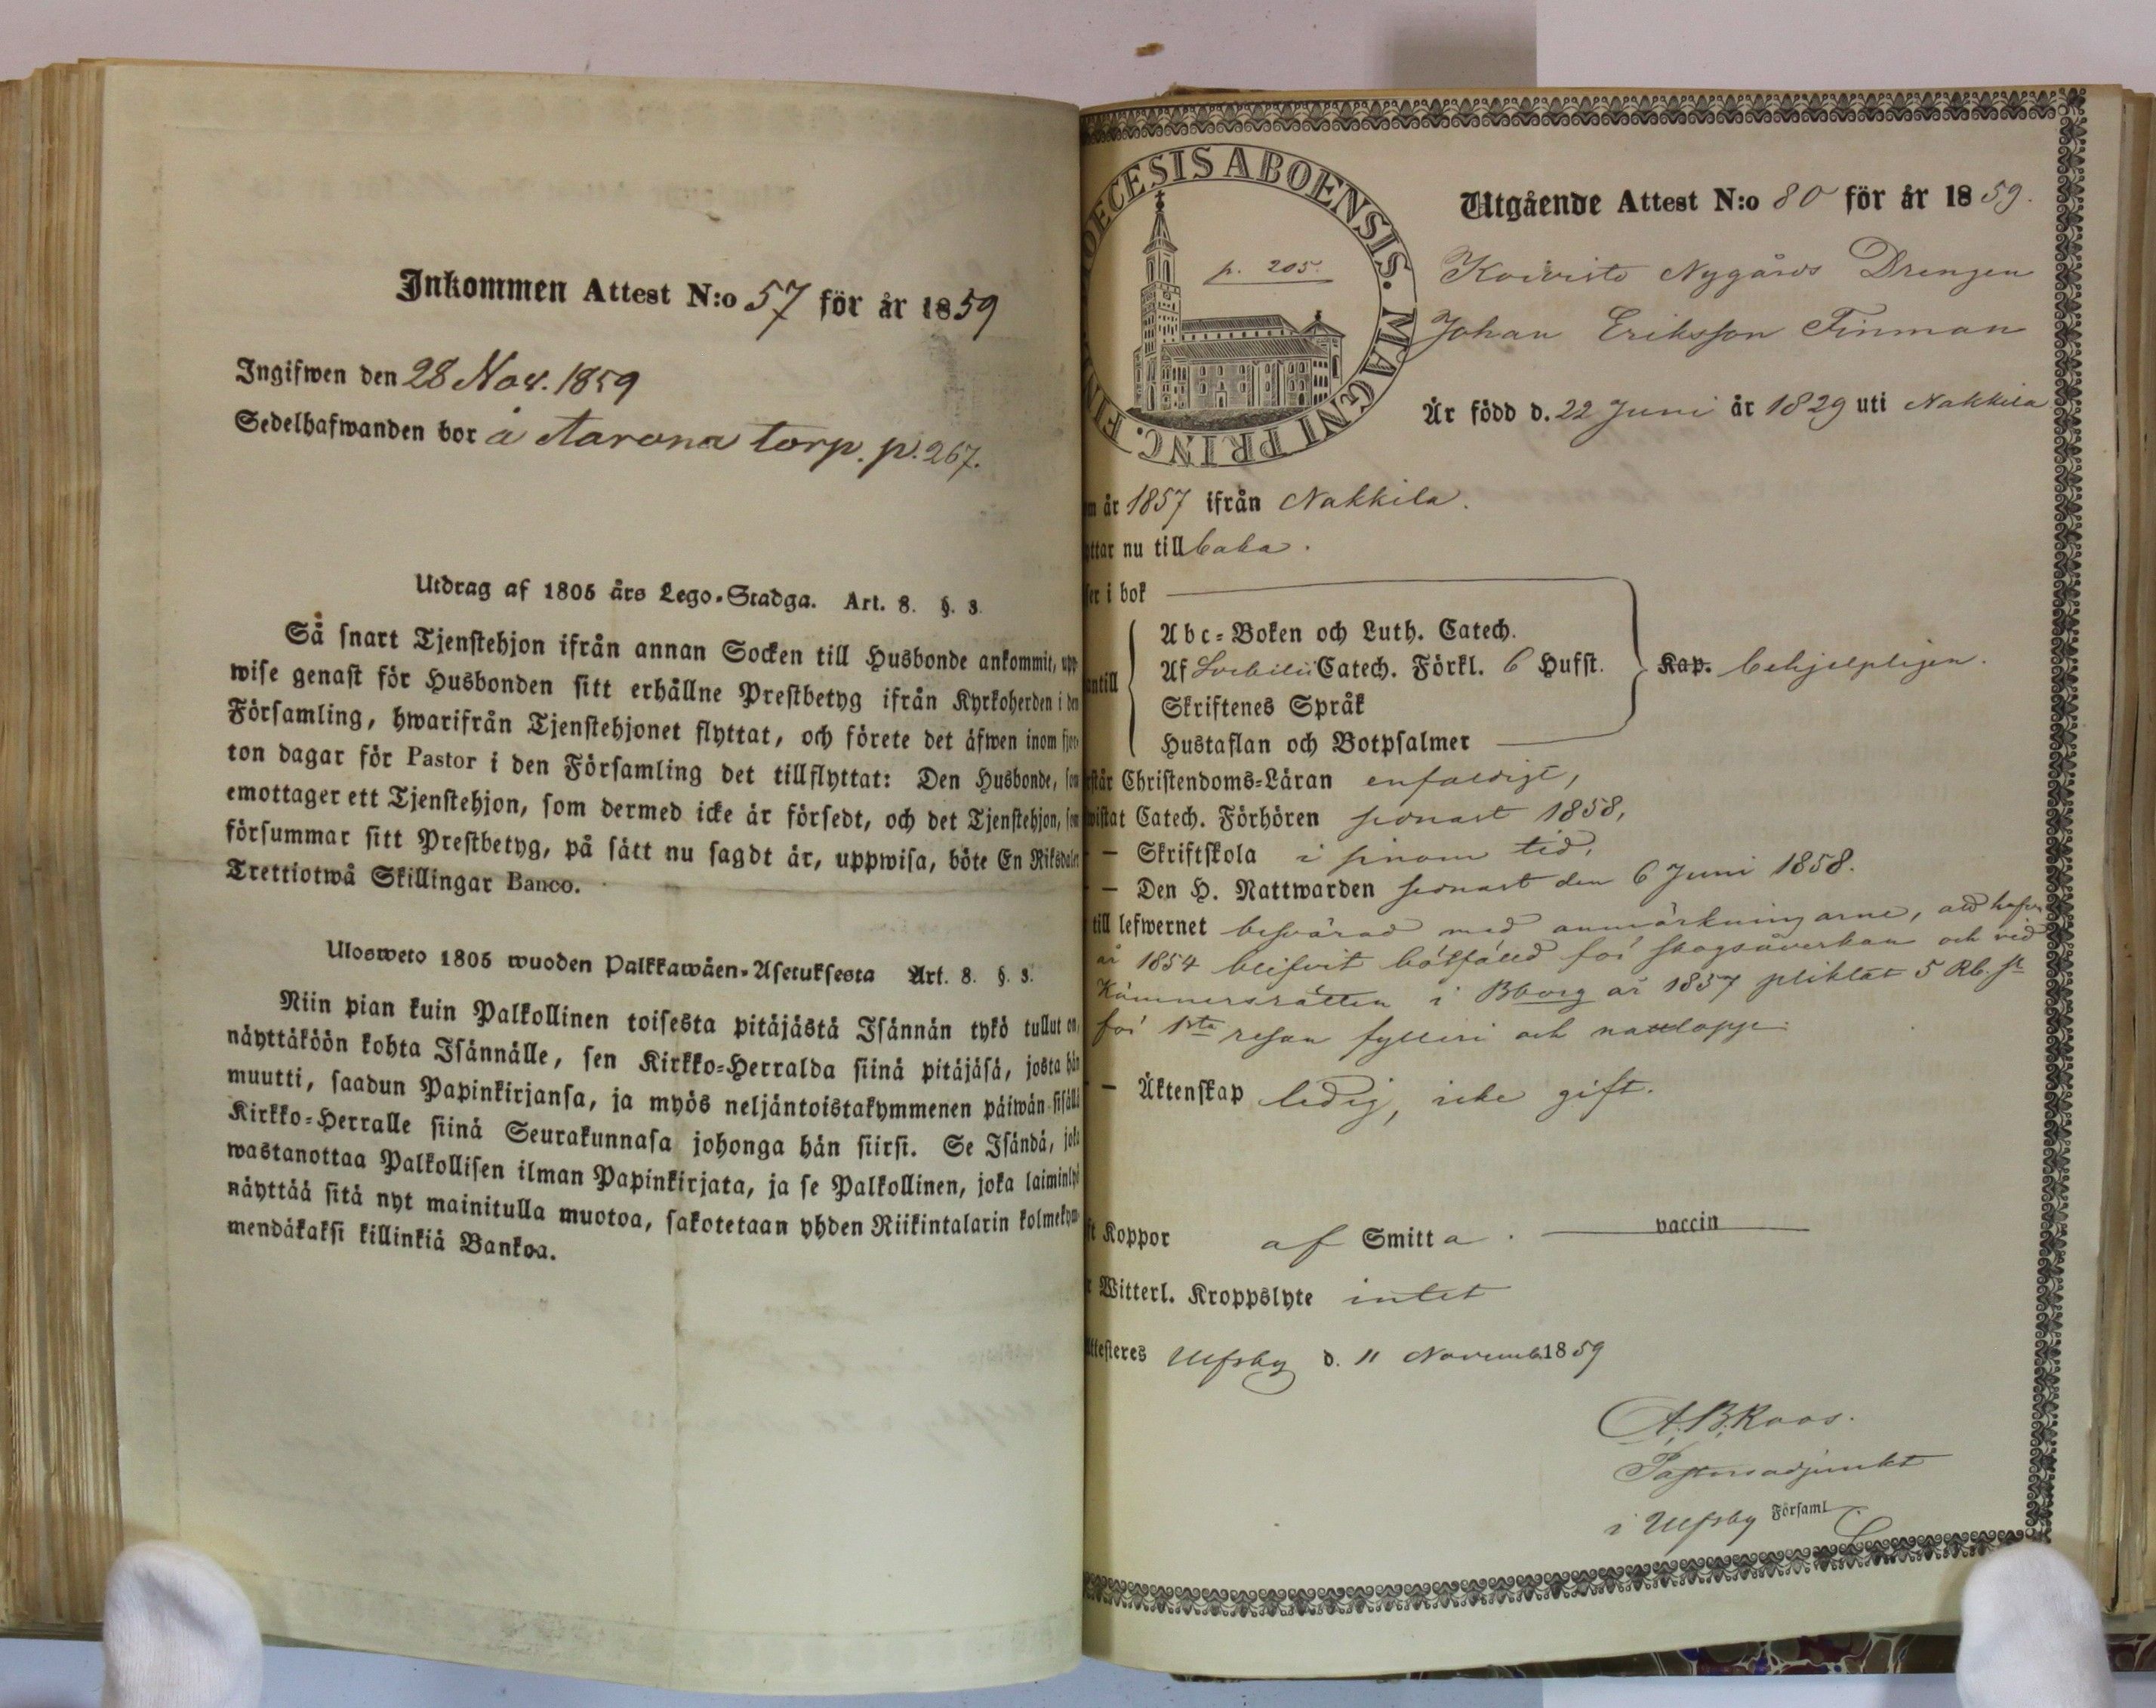 Inkommen Attest N:o 57 för år 1859
Ingifwen den 28 Nov. 1859
Sedelhafwanden bor å Aarona torp. p. 267.
Utdrag af 1805 års Lego-Stadga. Art. 8. §. 3.
Så snart Tjenstehjon ifrån annan Socken till Husbonde ankommit, upp-
wise genast för Husbonden sitt erhållne Prestbetyg ifrån Kyrkoherden i den
Församling, hwarifrån Tjenstehjonet flyttat, och förete det äfwen inom fjor-
ton dagar för Pastor i den Församling det tillflyttat: Den Husbonde, som
emottager ett Tjenstehjon, som dermed icke är försedt, och det Tjenstehjon, som
försummar sitt Prestbetyg, på sätt nu sagdt är, uppwisa, böte En Riksdaler
Trettiotwå Skillingar Banco.
Ulosweto 1805 wuoden Palkkawäen-Asetuksesta Art. 8. §. 3.
Niin pian kuin Palkollinen toisesta pitäjästä Isännän tykö tullut on,
näyttäköön kohta Isännälle, sen Kirkko-Herralda siinä pitäjäsä, josta hän
muutti, saadun Papinkirjansa, ja myös neljäntoistakymmenen päiwän sisällä
Kirkko-Herralle siinä Seurakunnasa johonga hän siirsi. Se Isändä, joka
wastanottaa Palkollisen ilman Papinkirjata, ja se Palkollinen, joka laiminlyö
näyttää sitä nyt mainitulla muotoa, sakotetaan yhden Riikintalarin kolmekym-
mendäkaksi killinkiä Bankoa.
DECESIS ABOENSIS. MAGNI PRINC. FIN
p. 205.
Utgående Attest N:o 80 för år 1859.
Koivisto Nygårds Drengen
Johan Eriksson Finman
Är född d. 22 Juni år 1829 uti Nakkila
m år 1857 ifrån Nakkila.
ttar nu tillbaka.
er i bok
ntill
Abc-Boken och Luth. Catech.
Af Svebilii Catech. Förkl. 6 Hufst.
Skriftenes Språk
Hustaflan och Botpsalmer
Kap. behjelpligen.
står Christendoms-Läran enfaldigt,
wistat Catech. Förhören senast 1858,
— Skriftskola i sinom tid,
— Den H. Nattwarden senast den 6 Juni 1858.
till lefwernet besvärad med anmärkningarne, att hafva
år 1854 blifvit bötfälld för skogsåverkan och vid
Kämnersrätten i Bborg år 1857 pliktat 5 Rb. st
för 1sta resan fylleri och nattlopp.
— Äktenskap ledig, icke gift.
ft Koppor af Smitta. vaccin
Witterl. Kroppslyte intet
ttesteres Ulfsby d. 11 Novemb. 1859
A. B. Roos.
Pastorsadjunkt
i Ulfsby Församl.